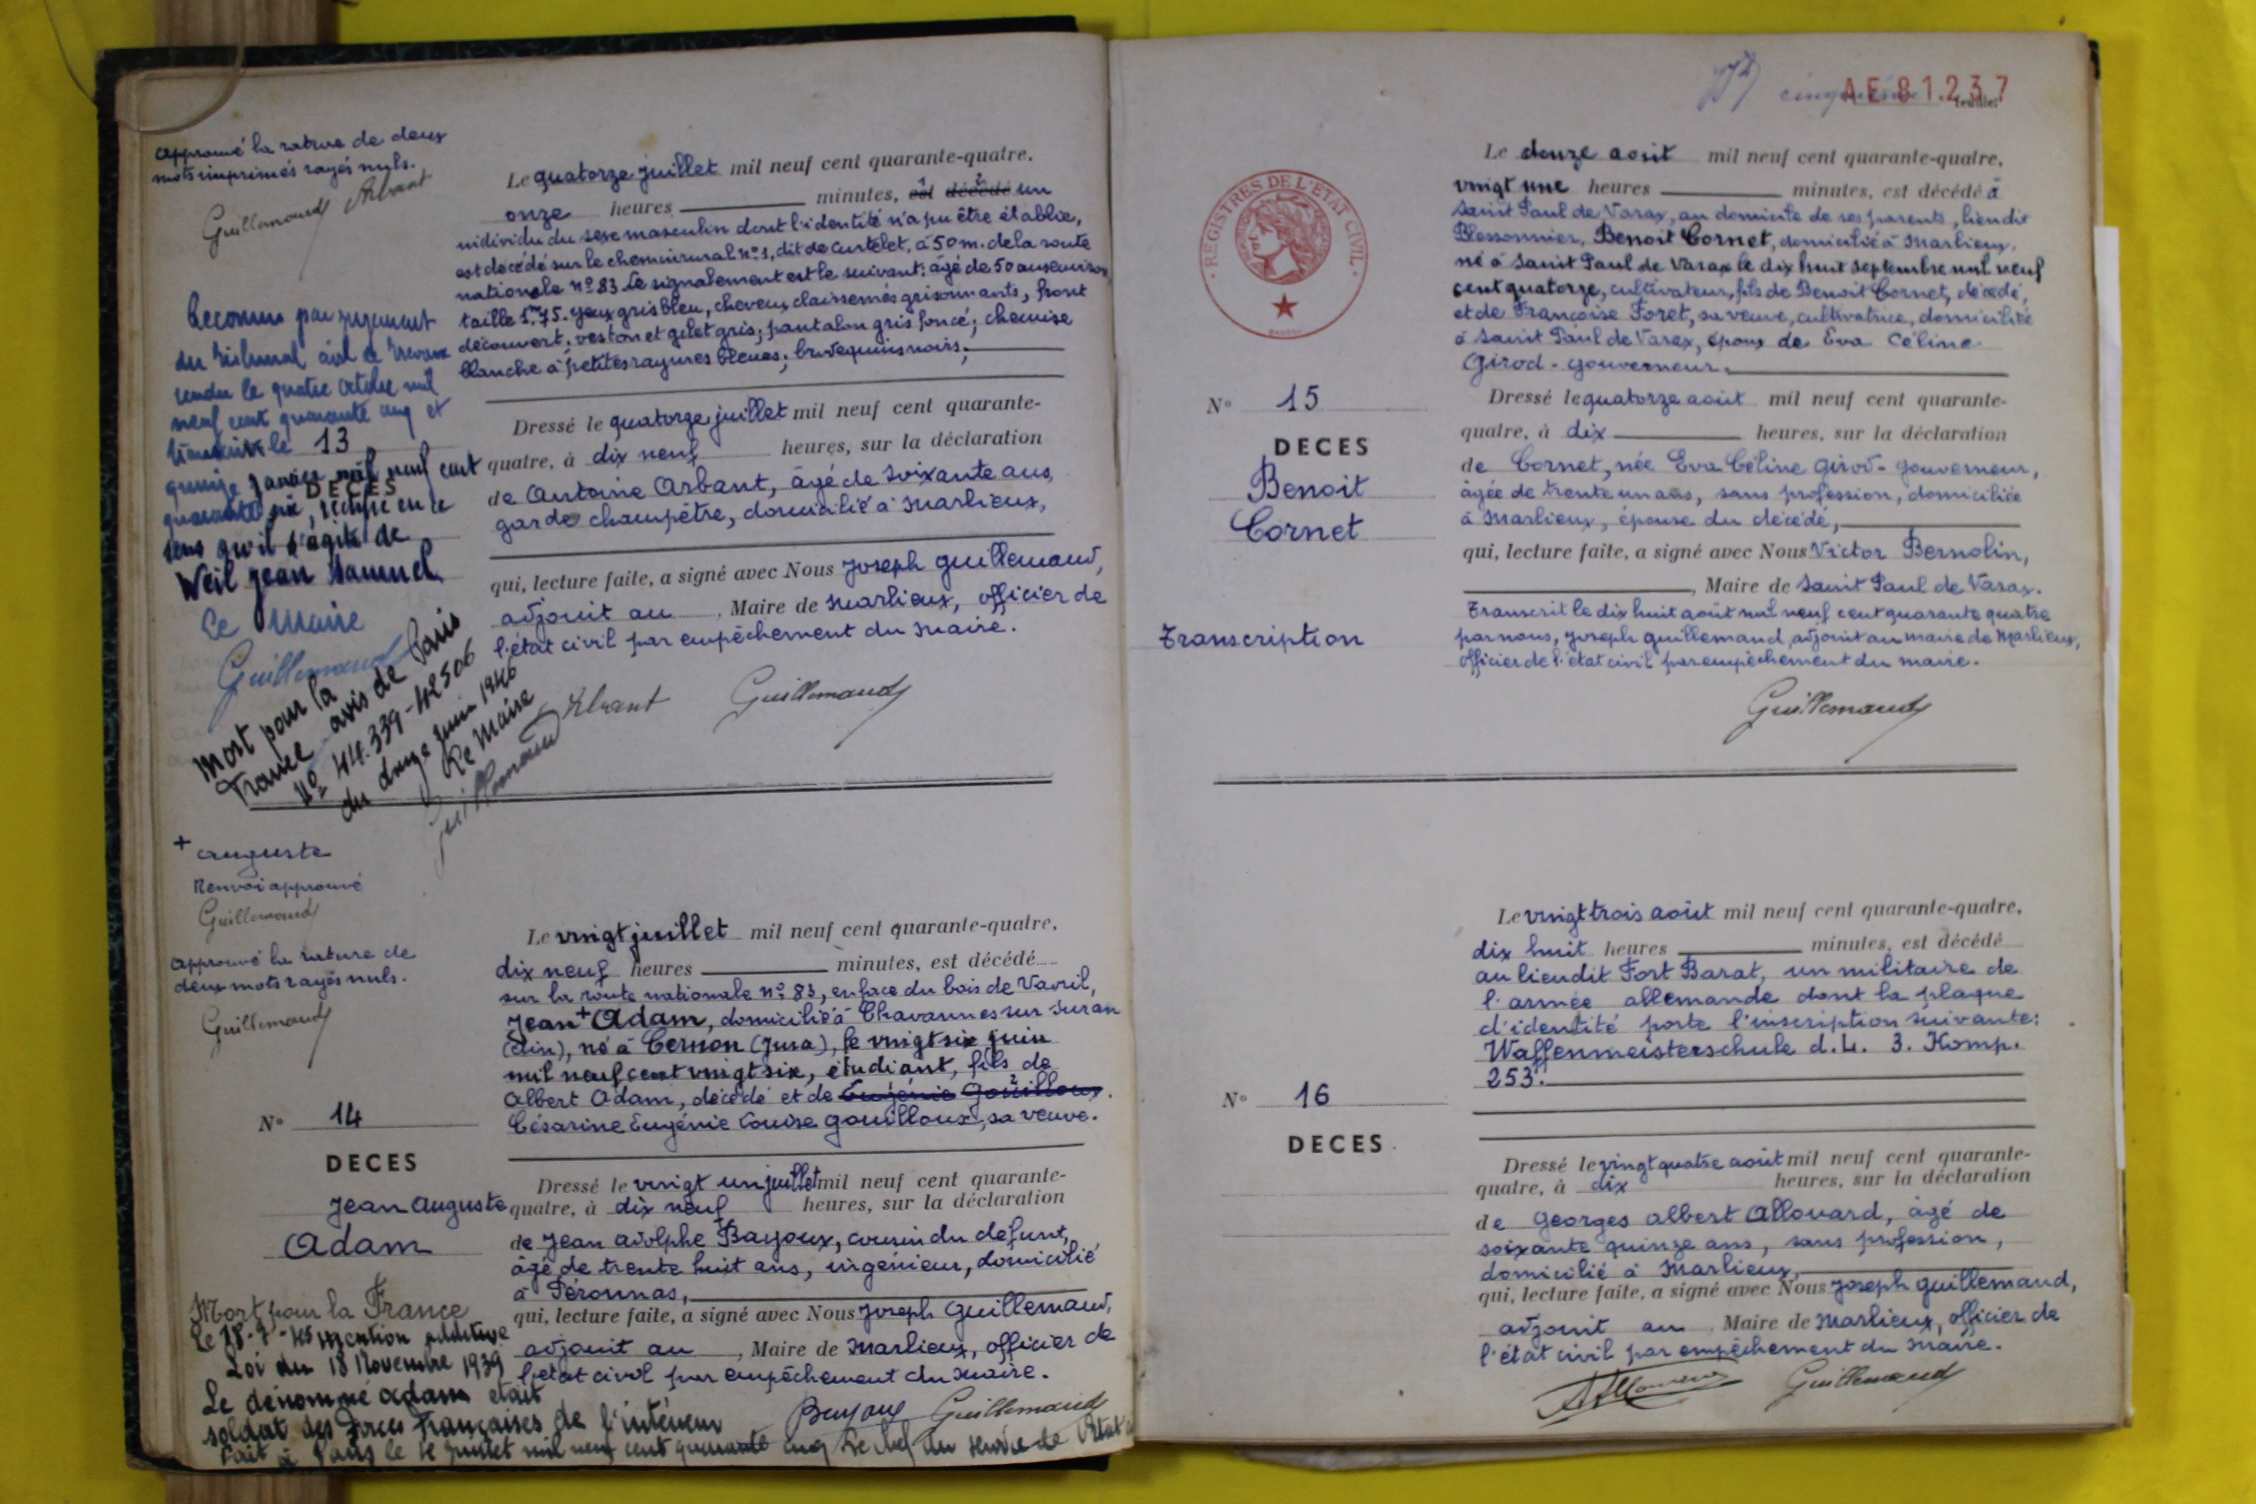 approuvé la rature de deux
mots imprimés rayés nuls.
Guillemaud Arbant
Reconnu par jugement
du tribunal civil de Trévoux
rendu le quatre octobre mil
neuf cent quarante cinq et
transcrit le
N° 13
quinze janvier mil neuf cent
DECES
quarante six, rectifié en ce
sens qu'il s'agit de
Weil Jean Samuel
Le Maire
Guillemaud
Mort pour la
France avis de Paris
N° 44.339-42506
du douze juin 1946
Le Maire
Guillemaud
Le quatorze juillet mil neuf cent quarante-quatre,
onze heures minutes, est décédé un
individu du sexe masculin dont l'identité n'a pu être établie,
est décédé sur le chemin rural n° 1, dit de Curtelet, à 50 m. de la route
nationale n° 83. Le signalement est le suivant: âgé de 50 ans environ,
taille 1m75. yeux gris bleu, cheveux clairsemés grisonnants, front
découvert, veston et gilet gris; pantalon gris foncé; chemise
blanche à petites rayures bleues; brodequins noirs;
Dressé le quatorze juillet mil neuf cent quarante-
quatre, à dix neuf heures, sur la déclaration
de Antoine Arbant, âgé de soixante ans,
garde champêtre, domicilié à Marlieux,
qui, lecture faite, a signé avec Nous Joseph Guillemaud,
adjoint au Maire de Marlieux, officier de
l'état civil par empêchement du Maire.
Arbant Guillemaud
+ Auguste
Renvoi approuvé
Guillemaud
Approuvé la rature de
deux mots rayés nuls.
Guillemaud
N° 14
DECES
Jean Auguste
Adam
Mort pour la France
Le 18-7-45 mention additive
Loi du 18 Novembre 1939
Le dénommé Adam était
soldat des Forces Françaises de l'intérieur
Fait à Paris le juillet mil neuf cent quarante cinq Le chef du service de l'Etat
Le vingt juillet mil neuf cent quarante-quatre,
dix neuf heures minutes, est décédé
sur la route nationale n° 83, en face du bois de Vavril,
Jean + Adam, domicilié à Chavannes sur Suran
(Ain), né à Cernon (Jura), le vingt six juin
mil neuf cent vingt six, étudiant, fils de
Albert Adam, décédé et de Eugénie Gouilloux.
Césarine Eugénie Louise Gouilloux, sa veuve.
Dressé le vingt un juillet mil neuf cent quarante-
quatre, à dix neuf heures, sur la déclaration
de Jean Adolphe Bayoux, cousin du défunt,
âgé de trente huit ans, ingénieur, domicilié
à Péronnas,
qui, lecture faite, a signé avec Nous Joseph Guillemaud,
adjoint au, Maire de Marlieux, officier de
l'état civil par empêchement du Maire.
Bayoux Guillemaud
cinquième feuillet
AE 81237
REGISTRES DE L'ETAT CIVIL
N° 15
DECES
Benoit
Cornet
Transcription
Le douze août mil neuf cent quarante-quatre,
vingt une heures minutes, est décédé à
Saint Paul de Varax, au domicile de ses parents, lieu dit
Blessonnier, Benoit Cornet, domicilié à Marlieux,
né à Saint Paul de Varax le dix huit septembre mil neuf
cent quatorze, cultivateur, fils de Benoit Cornet, décédé,
et de Françoise Foret, sa veuve, cultivatrice, domiciliée
à Saint Paul de Varax, époux de Eva Céline
Girod-Gouverneur.
Dressé le quatorze août mil neuf cent quarante-
quatre, à dix heures, sur la déclaration
de Cornet, née Eva Céline Girod-Gouverneur,
âgée de trente un ans, sans profession, domiciliée
à Marlieux, épouse du décédé,
qui, lecture faite, a signé avec Nous Victor Bernolin,
, Maire de Saint Paul de Varax.
Transcrit le dix huit août mil neuf cent quarante quatre
par nous, Joseph Guillemaud, adjoint au maire de Marlieux,
officier de l'état civil par empêchement du maire.
Guillemaud
N° 16
DECES
Le vingt trois août mil neuf cent quarante-quatre,
dix huit heures minutes, est décédé
au lieu dit Fort Barat, un militaire de
l'armée allemande dont la plaque
d'identité porte l'inscription suivante:
Waffenmeisterschule d.L. 3. Komp.
253.
Dressé le vingt quatre août mil neuf cent quarante-
quatre, à dix heures, sur la déclaration
de Georges Albert Allouard, âgé de
soixante quinze ans, sans profession,
domicilié à Marlieux,
qui, lecture faite, a signé avec Nous Joseph Guillemaud,
adjoint au Maire de Marlieux, officier de
l'état civil par empêchement du Maire.
Guillemaud